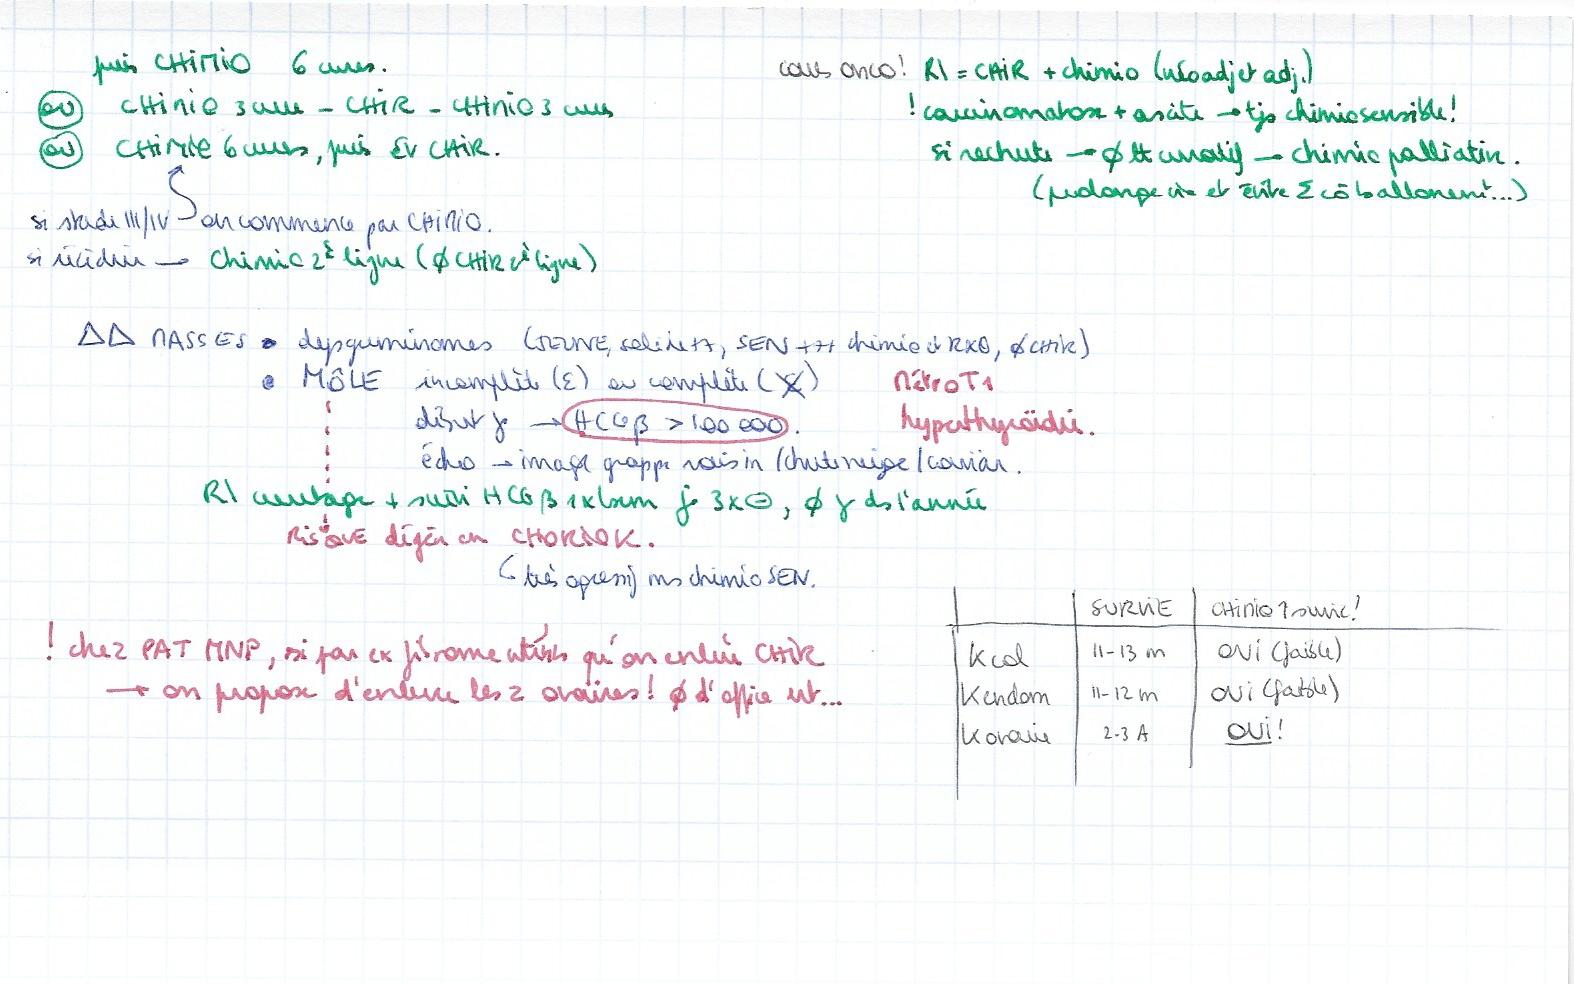 puis CHIMIO 6 cures.
ou CHIMIO 3 cures - CHIR - CHIMIO 3 cures
ou CHIMIO 6 cures, puis Ev CHIR.
si stade III/IV on commence par CHIMIO.
si récidive → chimio 2è ligne (∅ CHIR 2è ligne)
cours onco! R\ = CHIR + chimio (néoadj et adj.)
! carcinomatose + ascite → tjs chimiosensible!
si rechute → ∅ tt curatif → chimio palliative.
(prolonge vie et évite Σ cô ballonement...)
ΔΔ MASSES • dysgerminomes (JEUNE, solide ++, SEN +++ chimio & RXθ, ∅ CHIR)
• MÔLE incomplète (Σ) ou complète
début → HCGβ > 100 000.
écho → image grappe raisin / chute neige / caviar.
MétroT1
hyperthyroïdie.
R\ curetage + suivi HCGβ 1x/sem 3x⊖, ∅ ds l'année
RISQUE dégén en CHORIOK.
très agressif ms chimioSEN.
! chez PAT MNP, si par ex fibrome utérus qu'on enlève CHIR
→ on propose d'enlever les 2 ovaires! ∅ d'office ut...
SURVIE CHIMIO ↑ survie!
K col 11-13 m OUI (faible)
K endom 11-12 m OUI (faible)
K ovaire 2-3 A OUI!